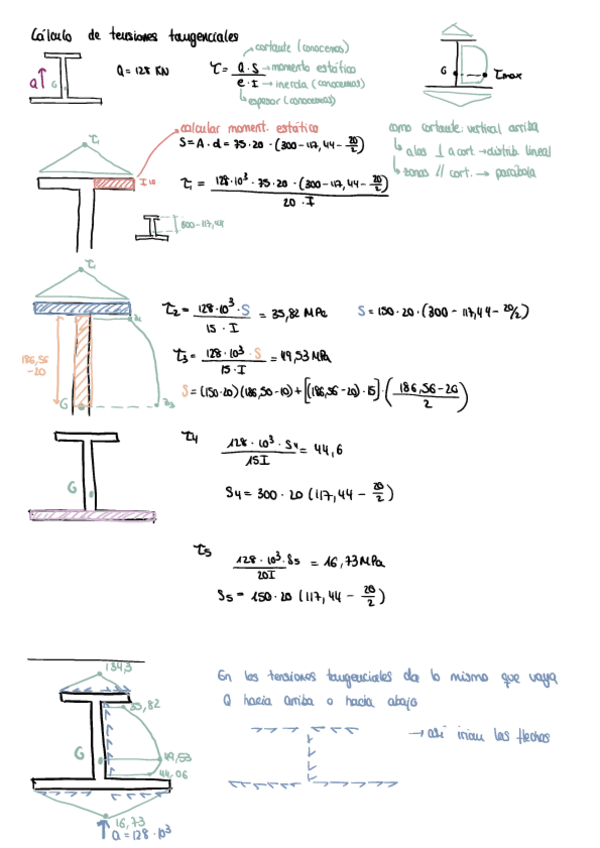 Cálculo de tensiones tangenciales
Q
G
Q = 128 KN
τ = Q · S / e · I
cortante (conocemos)
momento estático
inercia (conocemos)
espesor (conocemos)
G
τmax
calcular moment. estático
S = A · d = 75 · 20 · (300 - 117,44 - 20/2)
como cortante: vertical arriba
alas ⊥ a cort. → distrib. lineal
zonas // cort. → parábola
τ1
τ1 = 128·10³ · 75 · 20 · (300 - 117,44 - 20/2) / 20 · I
300 - 117,44
τ1
τ2 = 128·10³ · S / 15 · I = 35,82 MPa
S = 150 · 20 · (300 - 117,44 - 20/2)
τ3 = 128·10³ · S / 15 · I = 49,53 MPa
186,56
-20
G
S = (150·20)(186,50 - 10) + [(186,56 - 20) · 15] · (186,56 - 20 / 2)
τ4
128 · 10³ · S4 / 15I = 44,6
G
S4 = 300 · 20 (117,44 - 20/2)
τ5
128 · 10³ · S5 / 20I = 16,73 MPa
S5 = 150 · 20 (117,44 - 20/2)
134,3
35,82
G
49,53
44,06
16,73
Q = 128 · 10³
En las tensiones tangenciales da lo mismo que vaya
Q hacia arriba o hacia abajo
→ así irían las flechas